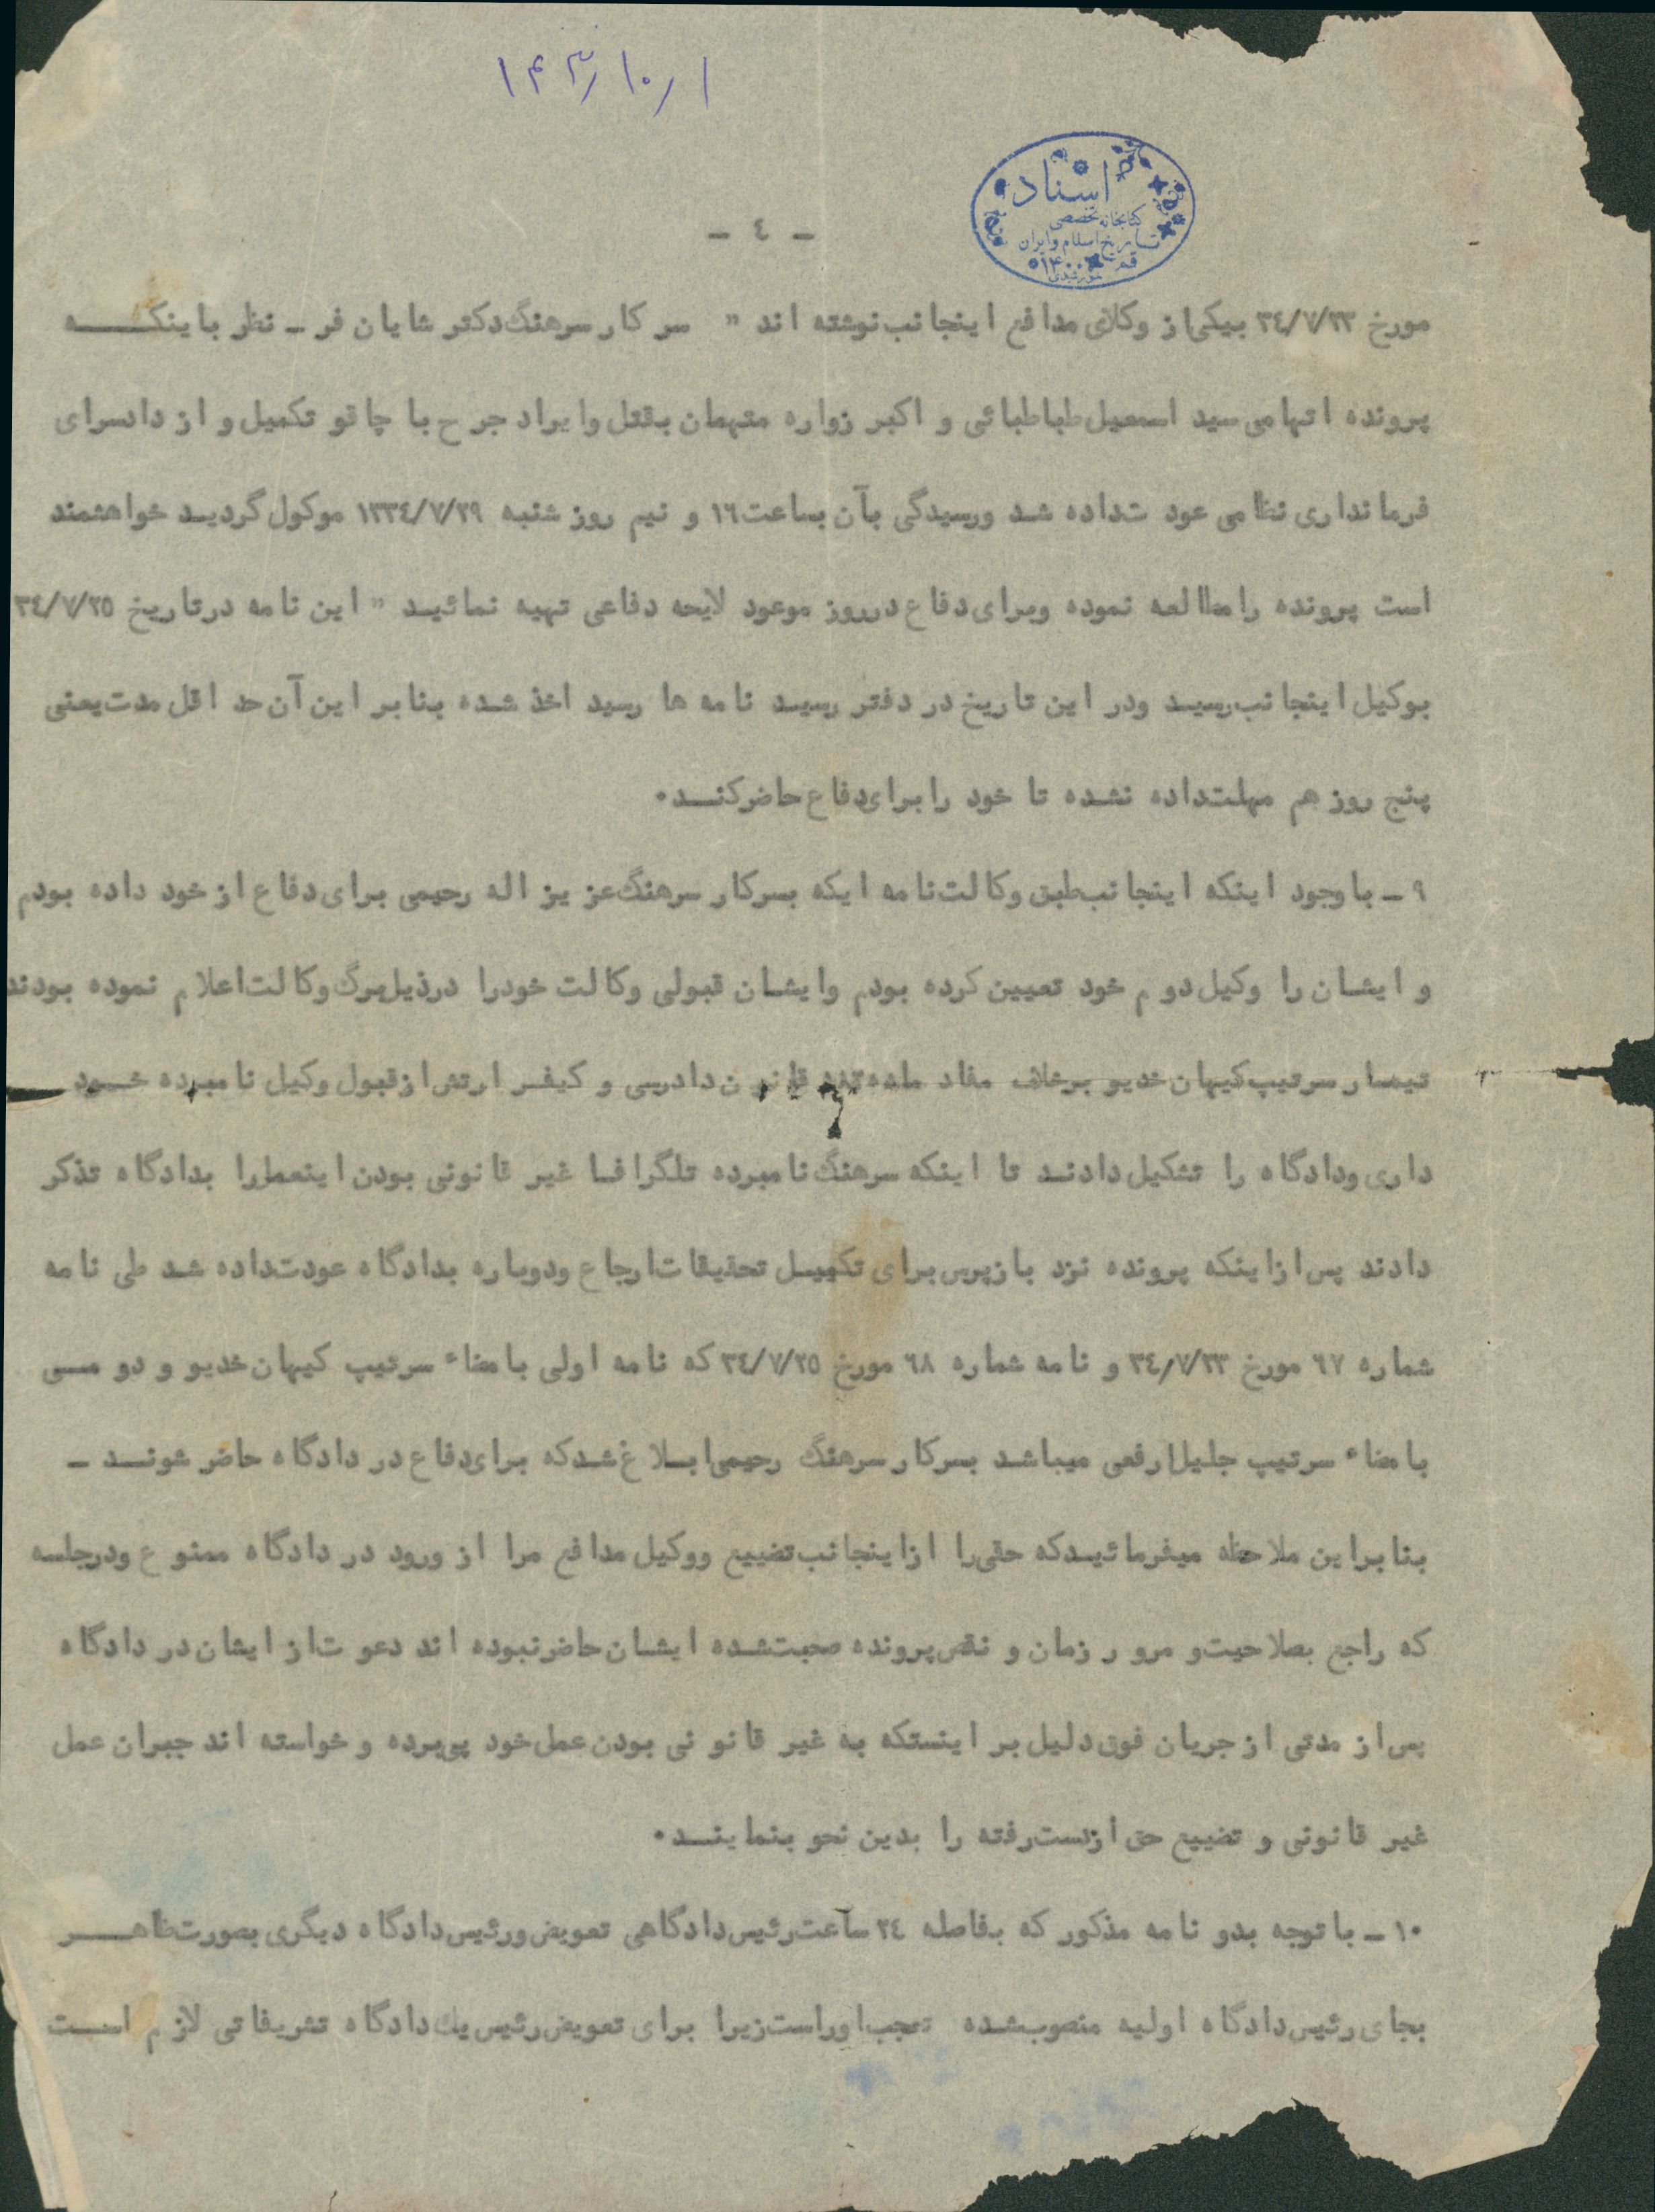 ۱۴۳/۱۰/۱
اسناد
کتابخانه تخصصی
تاریخ اسلام و ایران
قم
- ٤ -
مورخ ٣٤/٧/٢٣ بیکی از وکلای مدافع اینجانب نوشته اند " سرکار سرهنگ دکتر شایان فر - نظر باینکه
پرونده اتهامی سید اسمعیل طباطبائی و اکبر زواره متهمان بقتل وایراد جرح با چاقو تکمیل و از دادسرای
فرمانداری نظامی عودت داده شد ورسیدگی بآن بساعت ١٦ و نیم روز شنبه ١٣٣٤/٧/٢٩ موکول گردید خواهشمند
است پرونده را مطالعه نموده وبرای دفاع درروز موعود لایحه دفاعی تهیه نمائید " این نامه درتاریخ ٣٤/٧/٢٥
بوکیل اینجانب رسید ودر این تاریخ در دفتر رسید نامه ها رسید اخذ شده بنابر این آن حد اقل مدت یعنی
پنج روز هم مهلت داده نشده تا خود را برای دفاع حاضر کند۰
٩ - با وجود اینکه اینجانب طبق وکالت نامه ایکه بسرکار سرهنگ عزیز اله رحیمی برای دفاع از خود داده بودم
و ایشان را وکیل دوم خود تعیین کرده بودم وایشان قبولی وکالت خودرا درذیل برگ وکالت اعلام نموده بودند
تیمسار سرتیپ کیهان خدیو برخلاف مفاد ماده قانون دادرسی و کیفر ارتش از قبول وکیل نامبرده خود
داری ودادگاه را تشکیل دادند تا اینکه سرهنگ نامبرده تلگرافا غیر قانونی بودن اینعمل را بدادگاه تذکر
دادند پس از اینکه پرونده نزد بازپرس برای تکمیل تحقیقات ارجاع ودوباره بدادگاه عودت داده شد طی نامه
شماره ٦٧ مورخ ٣٤/٧/٢٣ و نامه شماره ٦٨ مورخ ٣٤/٧/٢٥ که نامه اولی بامضاء سرتیپ کیهان خدیو و دومی
بامضاء سرتیپ جلیل ارفعی میباشد بسرکار سرهنگ رحیمی ابلاغ شد که برای دفاع در دادگاه حاضر شوند -
بنابراین ملاحظه میفرمائید که حقی را از اینجانب تضییع ووکیل مدافع مرا از ورود در دادگاه ممنوع ودرجلسه
که راجع بصلاحیت و مرور زمان و نقص پرونده صحبت شده ایشان حاضر نبوده اند دعوت از ایشان در دادگاه
پس از مدتی از جریان فوق دلیل بر اینستکه به غیر قانونی بودن عمل خود پی برده و خواسته اند جبران عمل
غیر قانونی و تضییع حق ازدست رفته را بدین نحو بنمایند۰
١٠ - با توجه بدو نامه مذکور که بفاصله ٢٤ ساعت رئیس دادگاهی تعویض ورئیس دادگاه دیگری بصورت ظاهر
بجای رئیس دادگاه اولیه منصوب شده تعجب اوراست زیرا برای تعویض رئیس یك دادگاه تشریفاتی لازم است